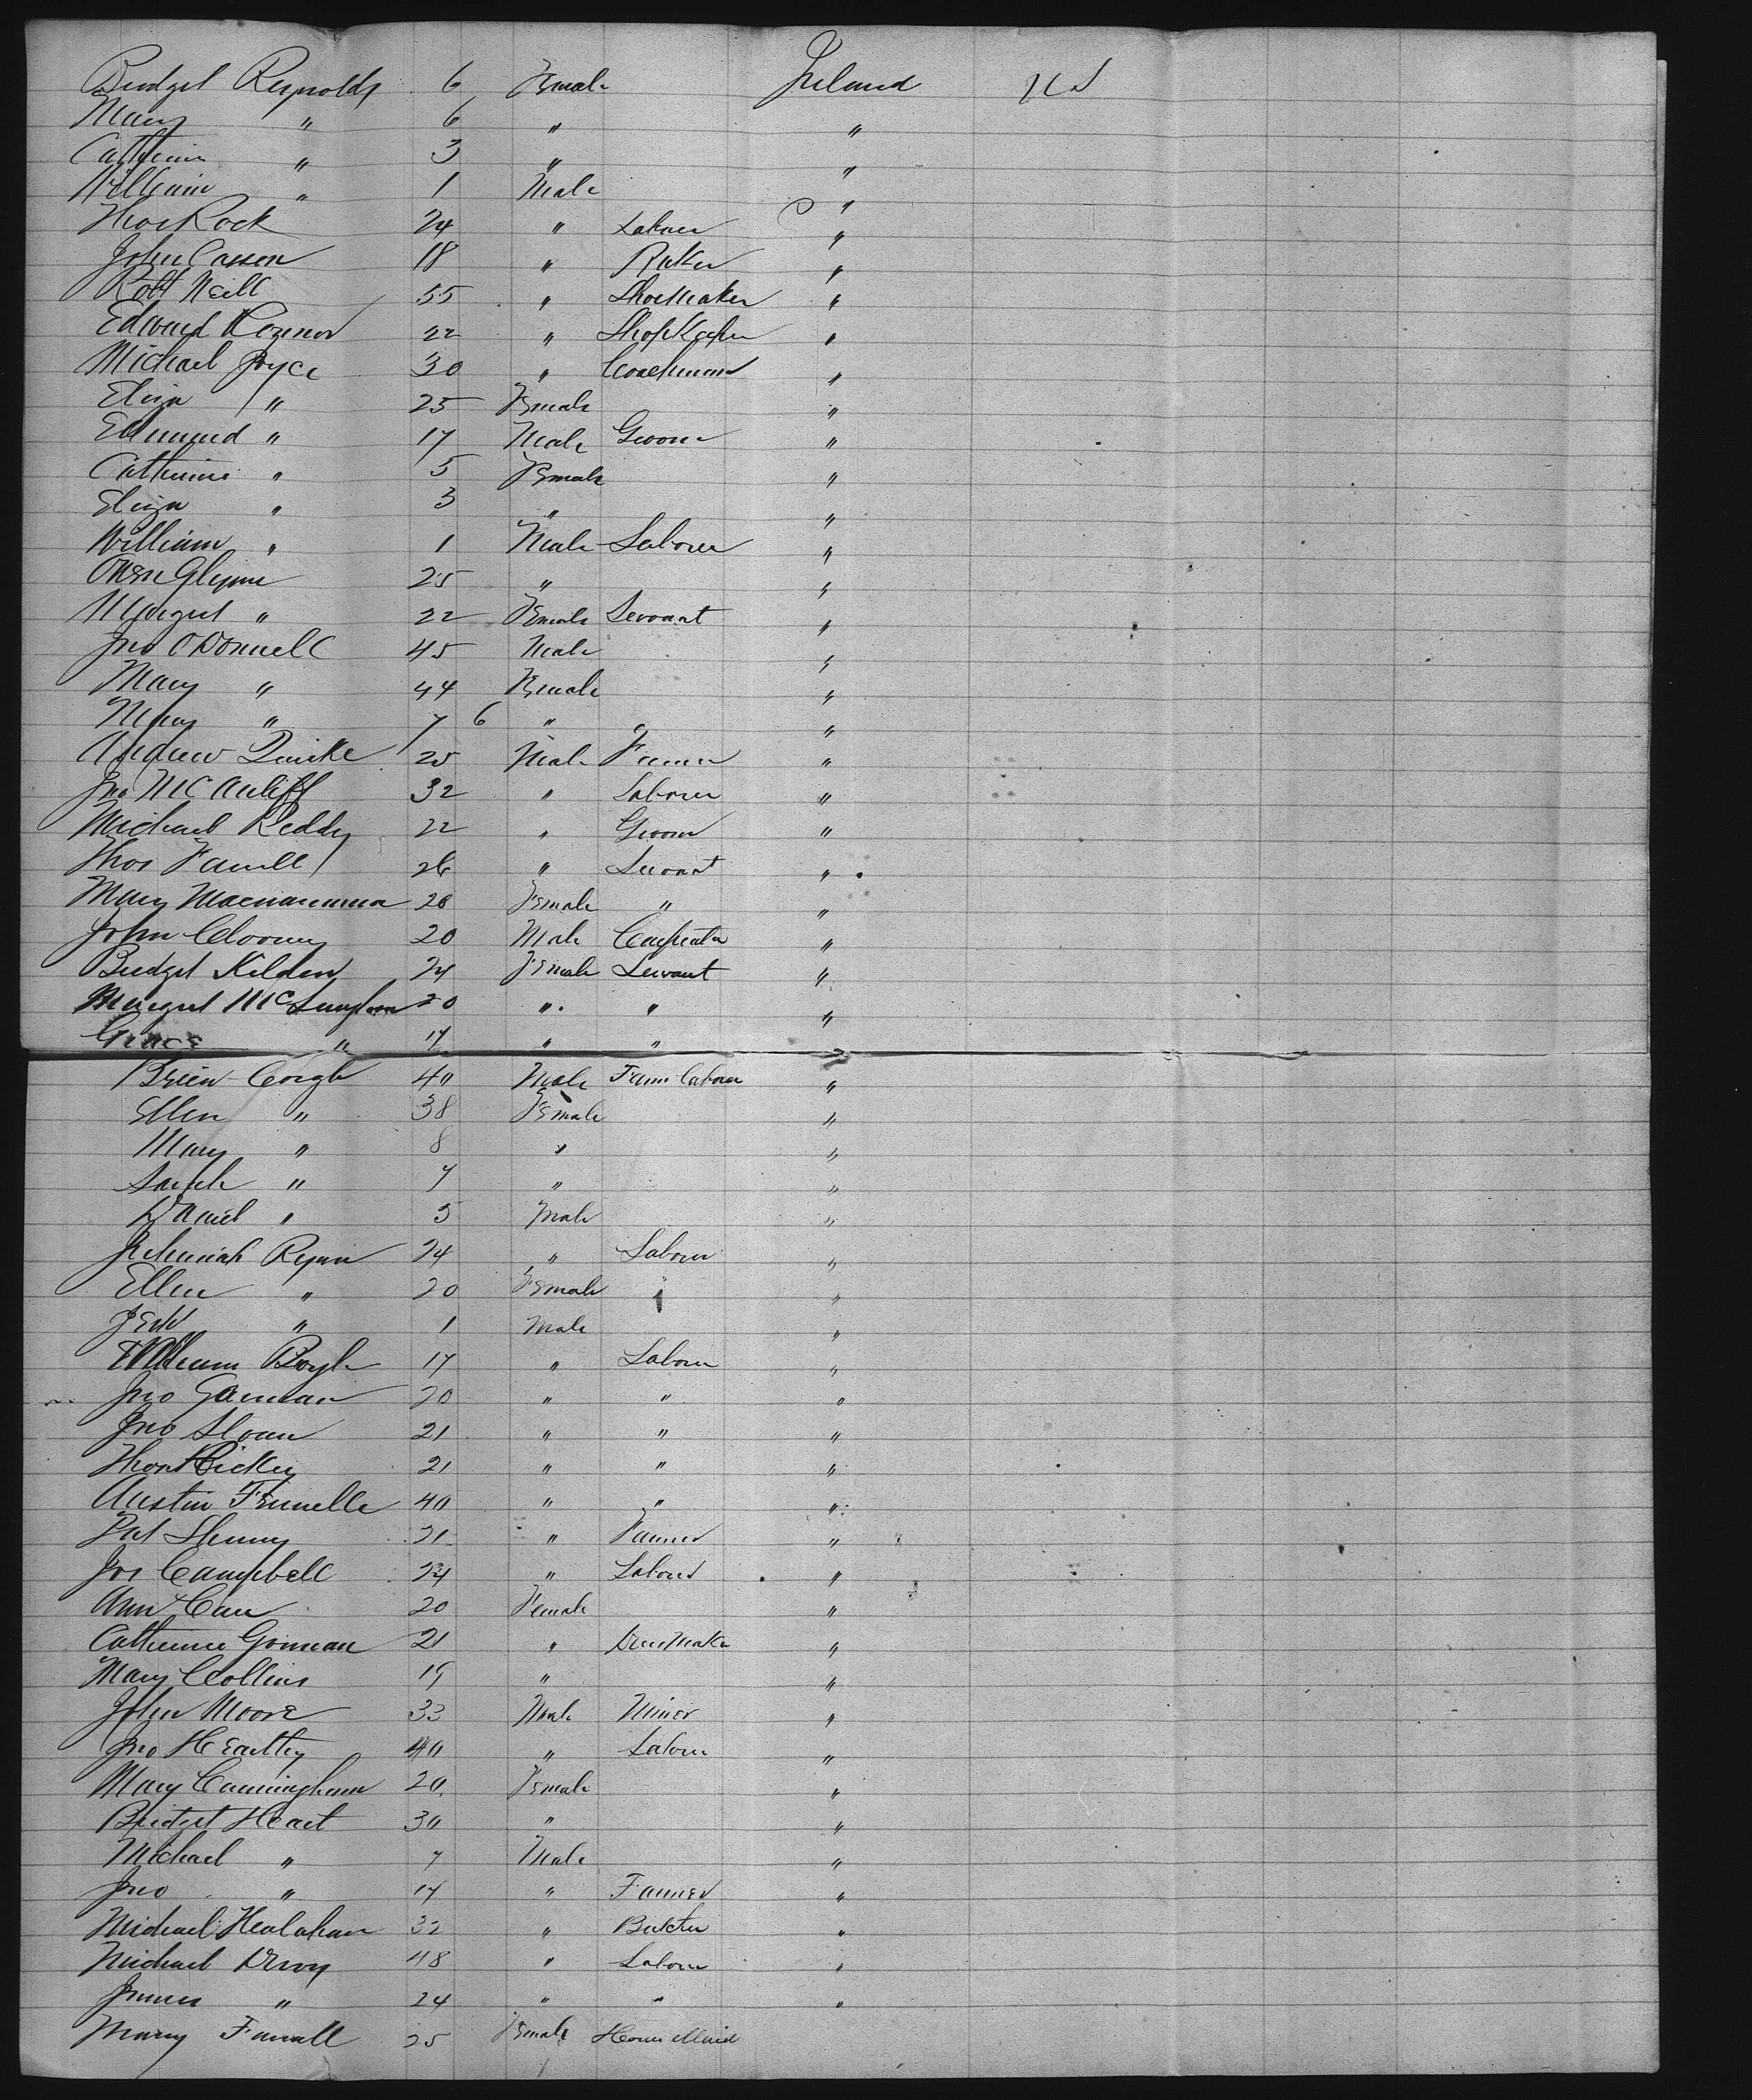 Bridget Reynolds 6 Female Ireland US
Mary " 6 " "
Catherine " 3 " "
William " 1 Male "
Thos Rock 24 " Laborer "
John Casson 18 " "
Robt Neill 55 " Shoemaker "
Edward 22 " ShopKeeper "
Michael Joyce 30 " Coachman "
Eliza " 25 Female "
Edmund " 17 Male Groom "
Catherine " 5 Female "
Eliza " 3 " "
William " 1 Male Laborer "
Owen Glynn 25 " "
Margret " 22 Female Servant "
Jno O Donnell 45 Male "
Mary " 44 Female "
Mary " 7 6 " "
Andrew Quirke 25 Male Farmer "
Jno McAuliff 32 " Laborer "
Michael Reddy 22 " Groom "
Thos Farrell 26 " Servant "
Mary Macnamara 20 Female " "
John Clooney 20 Male Carpenter "
Bridget 24 Female Servant "
Margret 20 " " "
Grace " 17 " " "
Brien 40 Male Farm Laborer "
Ellen " 38 Female "
Mary " 8 " "
Sarah " 7 " "
Daniel " 5 Male "
Jeremiah Ryan 24 " Laborer "
Ellen " 20 Female "
" 1 Male "
William Boyle 17 " Laborer "
Jno 20 " " "
Jno Sloan 21 " " "
Thos Hickey 21 " " "
Austin 40 " " "
Pat 21 " Farmer "
Jos Campbell 24 " Laborer "
Ann Carr 20 Female "
Catherine Gorman 21 " DressMaker "
Mary Collins 19 " "
John Moore 33 Male Miner "
Jno 40 " Laborer "
Mary Cunningham 20 Female "
Bridget Heart 30 " "
Michael " 7 Male "
Jno " 17 " Farmer "
Michael 32 " "
Michael 48 " Laborer "
James " 24 " " "
Mary Farrell 25 Female House Maid